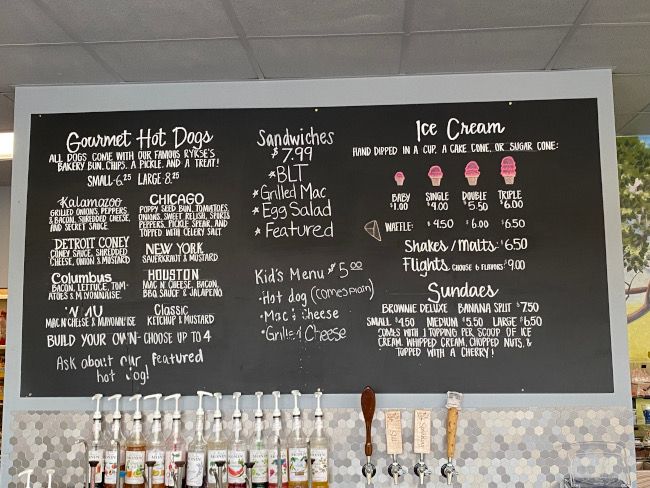 Gourmet Hot Dogs
ALL DOGS COME WITH OUR FAMOUS RYKSE'S
BAKERY BUN, CHIPS, A PICKLE, AND A TREAT!
SMALL 6.25 LARGE 8.25
Kalamazoo
GRILLED ONIONS, PEPPERS,
& BACON, SHREDDED CHEESE,
AND SECRET SAUCE.
DETROIT CONEY
CONEY SAUCE, SHREDDED
CHEESE, ONION & MUSTARD
Columbus
BACON, LETTUCE, TOM-
ATOES & M YONNAISE.
MAC N' CHEESE & MAYONNAISE
CHICAGO
POPPY SEED BUN, TOMATOES,
ONIONS, SWEET RELISH, SPORTS
PEPPERS, PICKLE SPEAR, AND
TOPPED WITH CELERY SALT
NEW YORK
SAUERKRAUT & MUSTARD
HOUSTON
MAC N' CHEESE, BACON,
BBQ SAUCE & JALAPENO
Classic
KETCHUP & MUSTARD
BUILD YOUR OWN- CHOOSE UP TO 4
Ask about our featured
hot dog!
Sandwiches
$7.99
*BLT
*Grilled Mac
*Egg Salad
*Featured
Kid's Menu $5.00
·Hot dog (comes plain)
·Mac & Cheese
·Grilled Cheese
Ice Cream
HAND DIPPED IN A CUP, A CAKE CONE, OR SUGAR CONE:
BABY SINGLE DOUBLE TRIPLE
$1.00 $4.00 $5.50 $6.00
WAFFLE: $4.50 $6.00 $6.50
Shakes/Malts: $6.50
Flights CHOOSE 6 FLAVORS $9.00
Sundaes
BROWNIE DELUXE BANANA SPLIT $7.50
SMALL $4.50 MEDIUM $5.50 LARGE $6.50
COMES WITH 1 TOPPING PER SCOOP OF ICE
CREAM, WHIPPED CREAM, CHOPPED NUTS, &
TOPPED WITH A CHERRY!